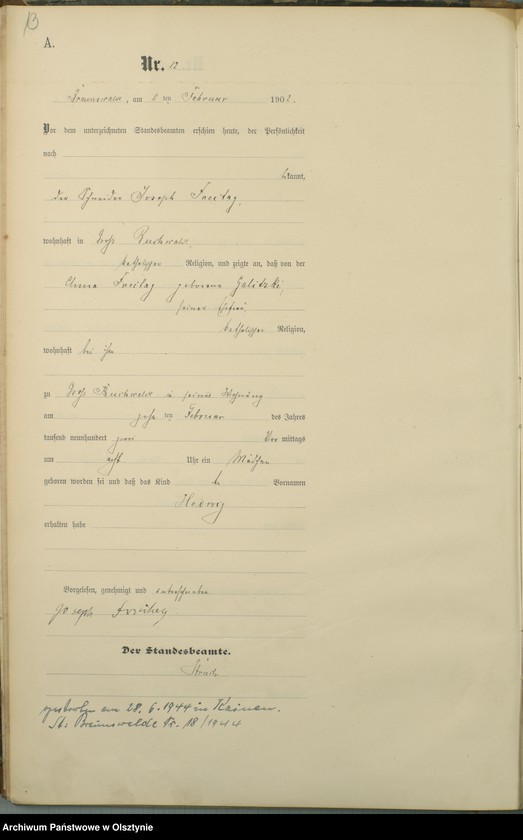 13
A.
Nr. 12
am 8 ten Februar 1902.
Vor dem unterzeichneten Standesbeamten erschien heute, der Persönlichkeit
nach
kannt,
der Schneider Joseph Freitag,
wohnhaft in Groß Buchwalde,
katholischer Religion, und zeigte an, daß von der
Anna Freitag geborene Galitzki,
seiner Ehefrau,
katholischer Religion,
wohnhaft bei ihm
zu Groß Buchwalde in seiner Wohnung
am ten Februar des Jahres
tausend neunhundert zwei Vor mittags
um acht Uhr ein Mädchen
geboren worden sei und daß das Kind den Vornamen
Hedwig
erhalten habe
Vorgelesen, genehmigt und unterschrieben
Joseph Freitag
Der Standesbeamte.
gestorben am 28.6.1944 in Kainen.
St: Braunswalde Nr. 18/1944
Archiwum Państwowe w Olsztynie